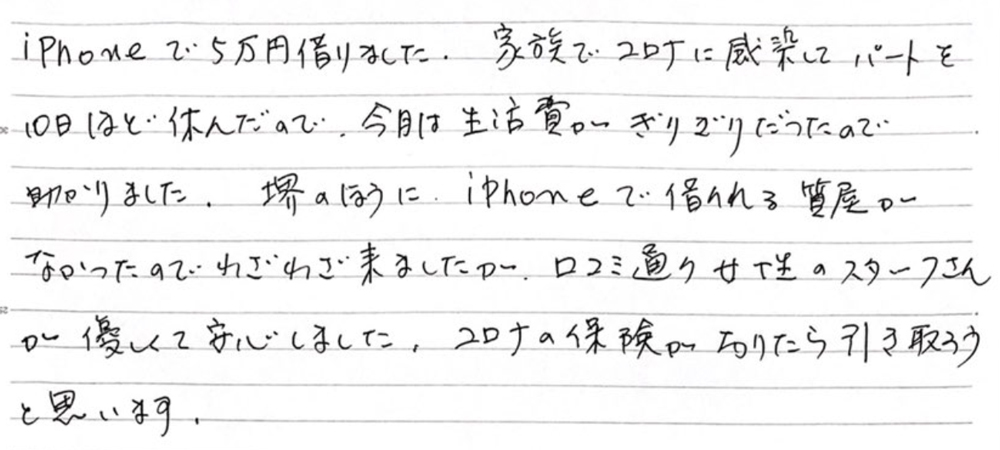 iPhoneで5万円借りました. 家族でコロナに感染してパートを
10日ほど休んだので. 今月は生活費がぎりぎりだったので
助かりました. 堺のほうに iPhoneで借りれる質屋が
なかったのでわざわざ来ましたが. 口コミ通り女性のスタッフさん
が優しくて安心しました. コロナの保険が下りたら引き取ろう
と思います.